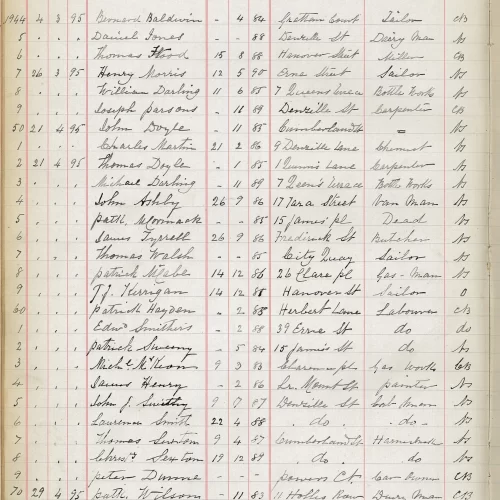 1944 4 3 95 Bernard Baldwin - 4 84 Grattan Court Tailor CB
5 . . . Daniel Jones - - 88 Denzille St Dairy Man NS
6 . . . Thomas Flood 15 8 88 Hanover Street CB
7 26 3 95 Henry Morris 12 5 90 Erne Street Sailor NS
8 . . . William Darling 11 6 85 7 Queens Bottle Works NS
9 . . . Joseph Parsons - 11 89 Denzille St Carpenter CB
50 21 4 95 John Doyle - 11 85 Cumberland St = NS
1 . . . Charles Martin 21 2 86 9 Denzille Lane Chemist NS
2 21 4 95 Thomas Doyle - 1 85 1 Lane Carpenter NS
3 . . . Michael Darling - 11 89 7 Bottle Works NS
4 . . . John Ashby 26 9 86 17 Tara Street Van Man NS
5 . . . Patk McCormack - - 85 15 James' Pl Dead NS
6 . . . James Tyrrell 26 9 86 Fredrick St Butcher NS
7 . . . Thomas Walsh - - 85 City Quay Sailor NS
8 . . . Patrick McCabe 14 12 86 26 Clare Pl Gas-Man NS
9 . . . T.J. Kerrigan 14 12 85 Hanover St Sailor
60 . . . Patrick Hayden - 2 85 Herbert Lane Labourer CB
1 . . . Edwd Smithers - 2 88 39 Erne St do do
2 . . . Patrick Sweeny - 5 84 15 James's St do NS
3 . . . Michl McKeon 9 3 83 Pl Gas Works CB
4 . . . James Henry - 2 86 Lr. Mount St painter NS
5 . . . John J. 9 7 87 Denzille St Cab Man NS
6 . . . Laurence Smith 22 4 88 do . do - NS
7 . . . Thomas Sexton 9 4 87 Cumberland St NS
8 . . . Chris. Sexton 19 12 89 do do NS
9 . . . Peter Dunne - - - Powers Ct CB
70 29 4 95 Patk. Wilson - 11 83 11 Holles Row Dairy Man CB